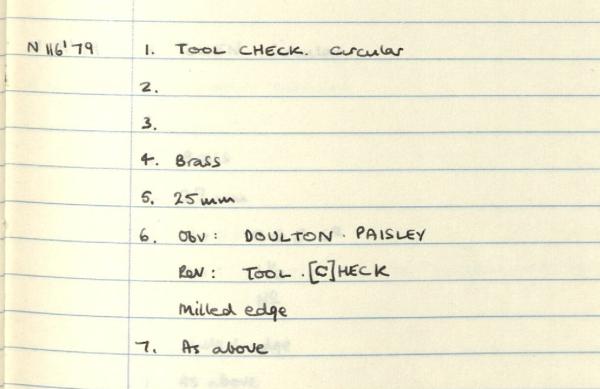 N 116'79 1. TOOL CHECK. Circular
2.
3.
4. Brass
5. 25mm
6. Obv: DOULTON. PAISLEY
Rev: TOOL.[C]HECK
Milled edge
7. As above